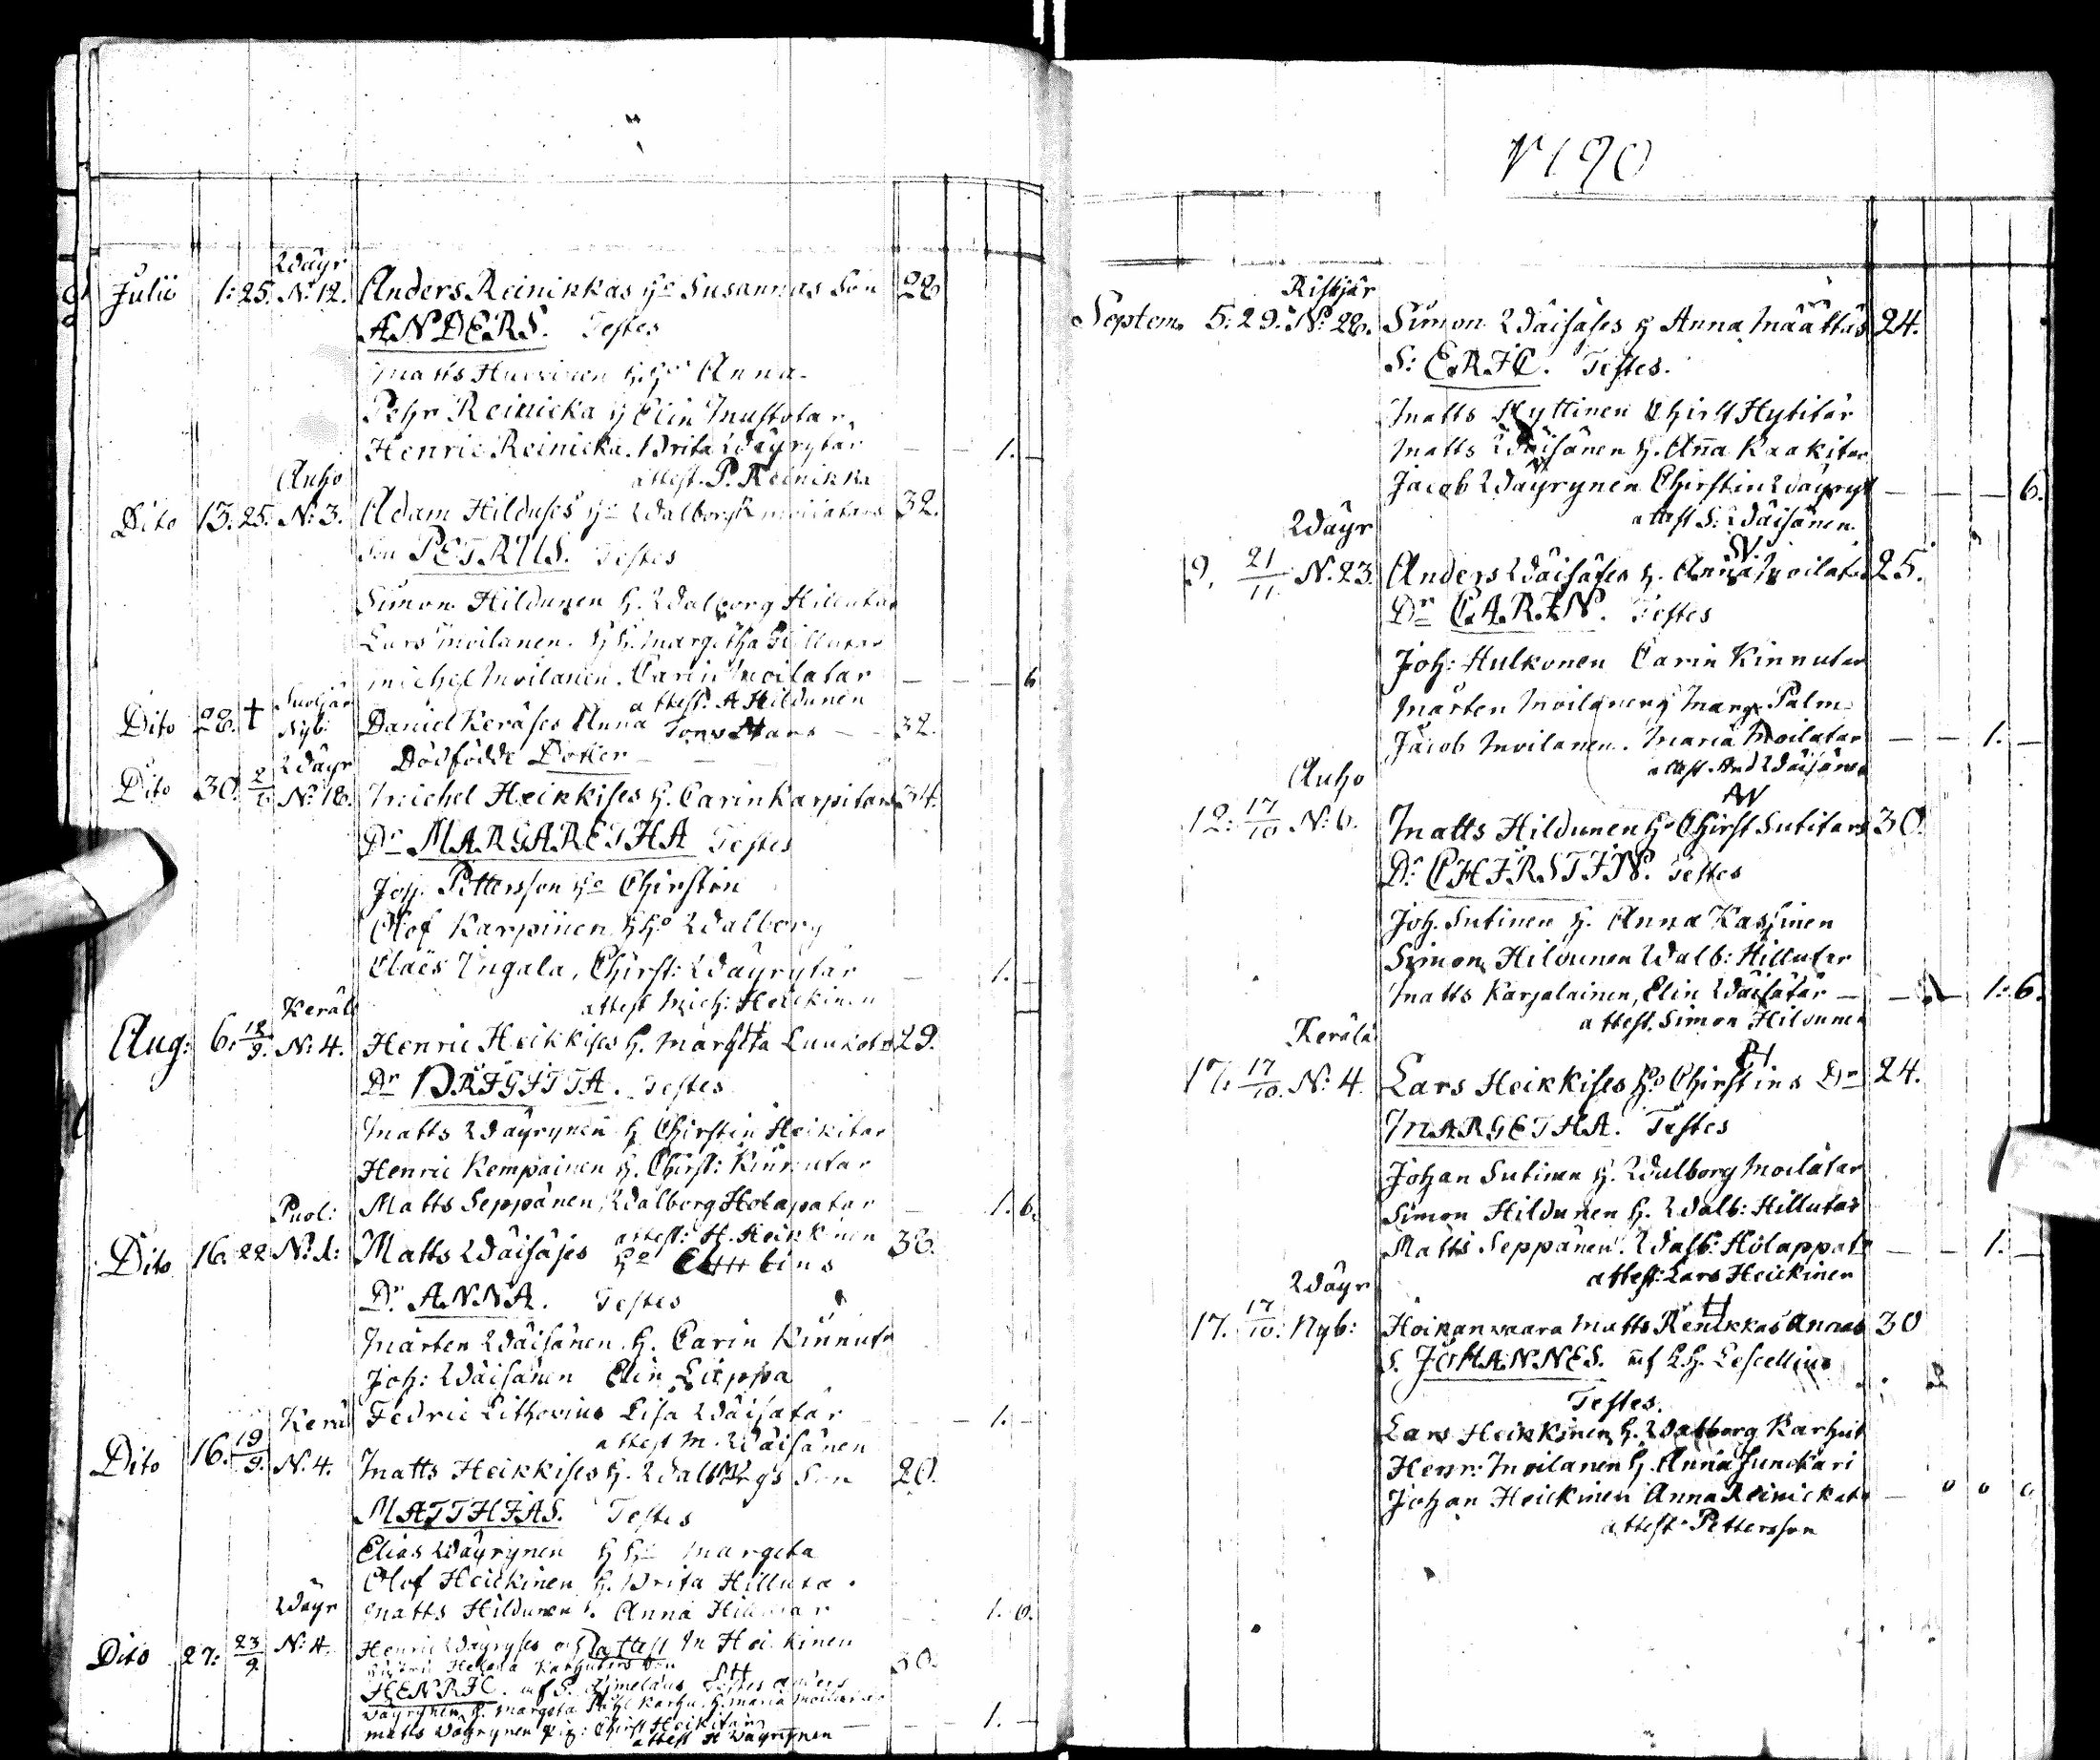 Wäyr
Julii 1: 25. N: 12. Anders Reinikkas H:o Susannas Son 28
ANDERS. Testes
Matts Hurskainen H:o Anna
Pehr Reinicka H Elin Mustotar
Henric Reinicka. Brita Wäyrytär — — 1. —
attest. P. Reinikka
Auho
Dito 13. 25. N: 3. Adam Hilduses H:o Walborg Moilatars 32.
Son PETRUS. Testes
Simon Hildunen H. Walborg Hillutar
Lars Moilanen. H H. Margetha Hillutar
Michel Moilanen. Carin Moilatar — — — 6
attest. A Hildunen
Suoljär
Dito 28. † Nyb: Daniel Keräses Anna — 32.
Dödfödde Dotter — — —
Wäyr
Dito 30. N: 18. Michel Heikkises H. Carin Karpitars 34.
D:r MARGARETHA Testes
Joh. Pettersson H:o Chirstin
Olof Karpinen H H:o Walborg
Claës Ingala, Chirst: Wäyrytär — 1. —
attest Mich: Heickinen
Kerälä
Aug: 6. 18/9. N: 4. Henric Heikkises H. Margeta Luukotar 29.
D:r BRIGITTA. Testes
Matts Wäyrynen H Chirstin Heikitar
Henric Kempainen H. Chirst: Kinnutar
Matts Seppänen, Walborg Holapatar — 1. 6.
attest: H. Heikkinen
Puol:
Dito 16. 22 N: 1: Matts Wäisäses H:o 38.
D:r ANNA. Testes
Mårten Wäisänen. H. Carin Kinnutr
Joh: Wäisänen Elin Lieppa
Fedric Lithovius Lisa Wäisätär — — 1. —
attest M. Wäisänen
Kerä
Dito 16. 19/9. N. 4. Matts Heikkises H. Walborgs Son 20.
MATTHIAS. Testes
Elias Wäyrynen H H:o Margeta
Olof Heickinen H. Brita Hilluta.
Matts Hildunen Anna Hillutar 1. 6.
attest M Heikinen
Wäyr
Dito 27: 23/9. N: 4. Henric Wäyryses och 30.
Hustru Helena Karhutars Son
HENRIC. Testes Anders
Wäyrynen H. Margeta Karhu. H. Maria Moilatar
Matts Wäyrynen Pig: Chirst Heikitär — — 1. —
attest H Wäyrynen
1790
Ristijär
Septem. 5: 29. N: 28. Simon Wäisäses H Anna Määttäs 24.
S: ERIC. Testes.
Matts Hyttinen Chirst Hytitär
Matts Wäisänen H. Anna Kaakitar
Jacob Wäyrynen Chirstin Wäyryt — — — 6.
attest S: Wäisänen.
Wäyr
9. 21/11. N. 23. Anders Wäisäses H. Anna Moilatars 25.
D:r CARIN. Testes
Joh: Hulkonen Carin Kinnutar
Mårten Moilanen H Marg. Palm
Jacob Moilanen. Maria Moilatar — — 1. —
attest. And Wäisänen
Auho
12: 17/10 N: 6. Matts Hildunen H:o Chirst Sutitars 30.
D:r CHIRSTIN. Testes
Joh. Sutinen H. Anna Kassinen
Simon Hildunen Walb: Hillutar
Matts Karjalainen, Elin Wäisätär — — 1: 6.
attest. Simon Hildunen
Kerälä
17. 17/10. N: 4. Lars Heikkises H:o Chirstins D:r 24.
MARGETHA. Testes
Johan Sutinen H. Walborg Moilatar
Simon Hildunen H. Walb: Hillutar
Matts Seppänen. Walb: Holappatr — — 1. —
attest: Lars Heickinen
Wäyr
17. 17/10: Nyb: Hoikanvaara Matts Renikkas Annas 30
S. JOHANNES. af L.H. Lescellius
Testes.
Lars Heikkinen H. Walborg Karhut
Henr: Moilanen H. Anna Sunckari
Johan Heickinen Anna Reinickatr — 0 0 0
attest. Pettersson